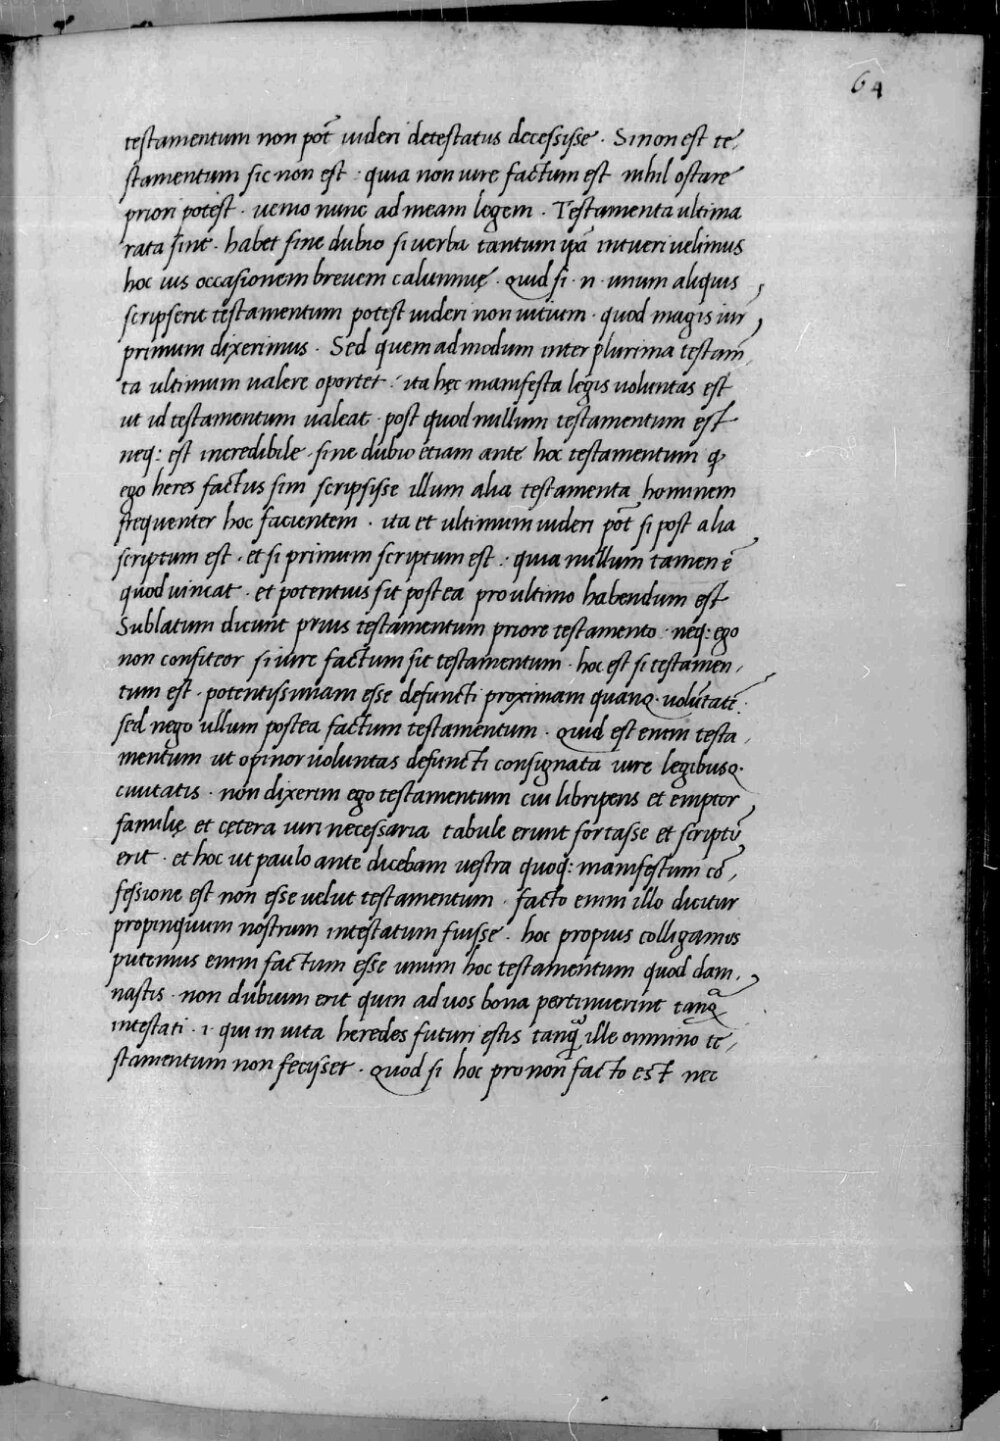 64
testamentum non pot̄ uideri detestatus decessisse · Si non est te,
stamentum sic non est : quia non iure factum est nihil ostare
priori potest · uenio nunc ad meam legem · Testamenta ultima
rata sint · habet sine dubio si uerba tantum ip̄a intueri uelimus
hoc ius occasionem breuem calumnię · Quid si · n · unum aliquis
scripserit testamentum potest uideri non uitium · quod magis iur,
primum dixerimus · Sed quemadmodum inter plurima testam̄,
ta ultimum ualere oportet : ita hęc manifesta legis uoluntas est
ut id testamentum ualeat · post quod nullum testamentum est
neq: est incredibile · sine dubio etiam ante hoc testamentum ꝙ
ego heres factus sim scripsisse illum alia testamenta hominem
frequenter hoc facientem · ita et ultimum uideri pot̄ si post alia
scriptum est · et si primum scriptum est : quia nullum tamen ē
quod uincat · et potentius sit postea pro ultimo habendum est
Sublatum dicunt prius testamentum priore testamento · neq: ego
non confiteor si iure factum sit testamentum · hoc est si testamen,
tum est · potentissimam esse defuncti proximam quanq · uolūtatē :
sed nego ullum postea factum testamentum · Quid est enim testa,
mentum ut opinor uoluntas defuncti consignata iure legibusq ·
ciuitatis · non dixerim ego testamentum cui libripens et emptor,
familię et cętera iuri necessaria tabule erunt fortasse et scriptū
erit · et hoc ut paulo ante dicebam uestra quoq: manifestum cō,
fessione est non esse uelut testamentum · facto enim illo dicitur
propinquum nostrum intestatum fuisse · hoc propius colligamus
putemus enim factum esse unum hoc testamentum quod dam,
nastis · non dubium erit quin ad uos bona pertinuerint tanq̄
intestati · i · qui in uita heredes futuri estis tanq̄ ille omnino te,
stamentum non fecisset · Quod si hoc pro non facto est nec